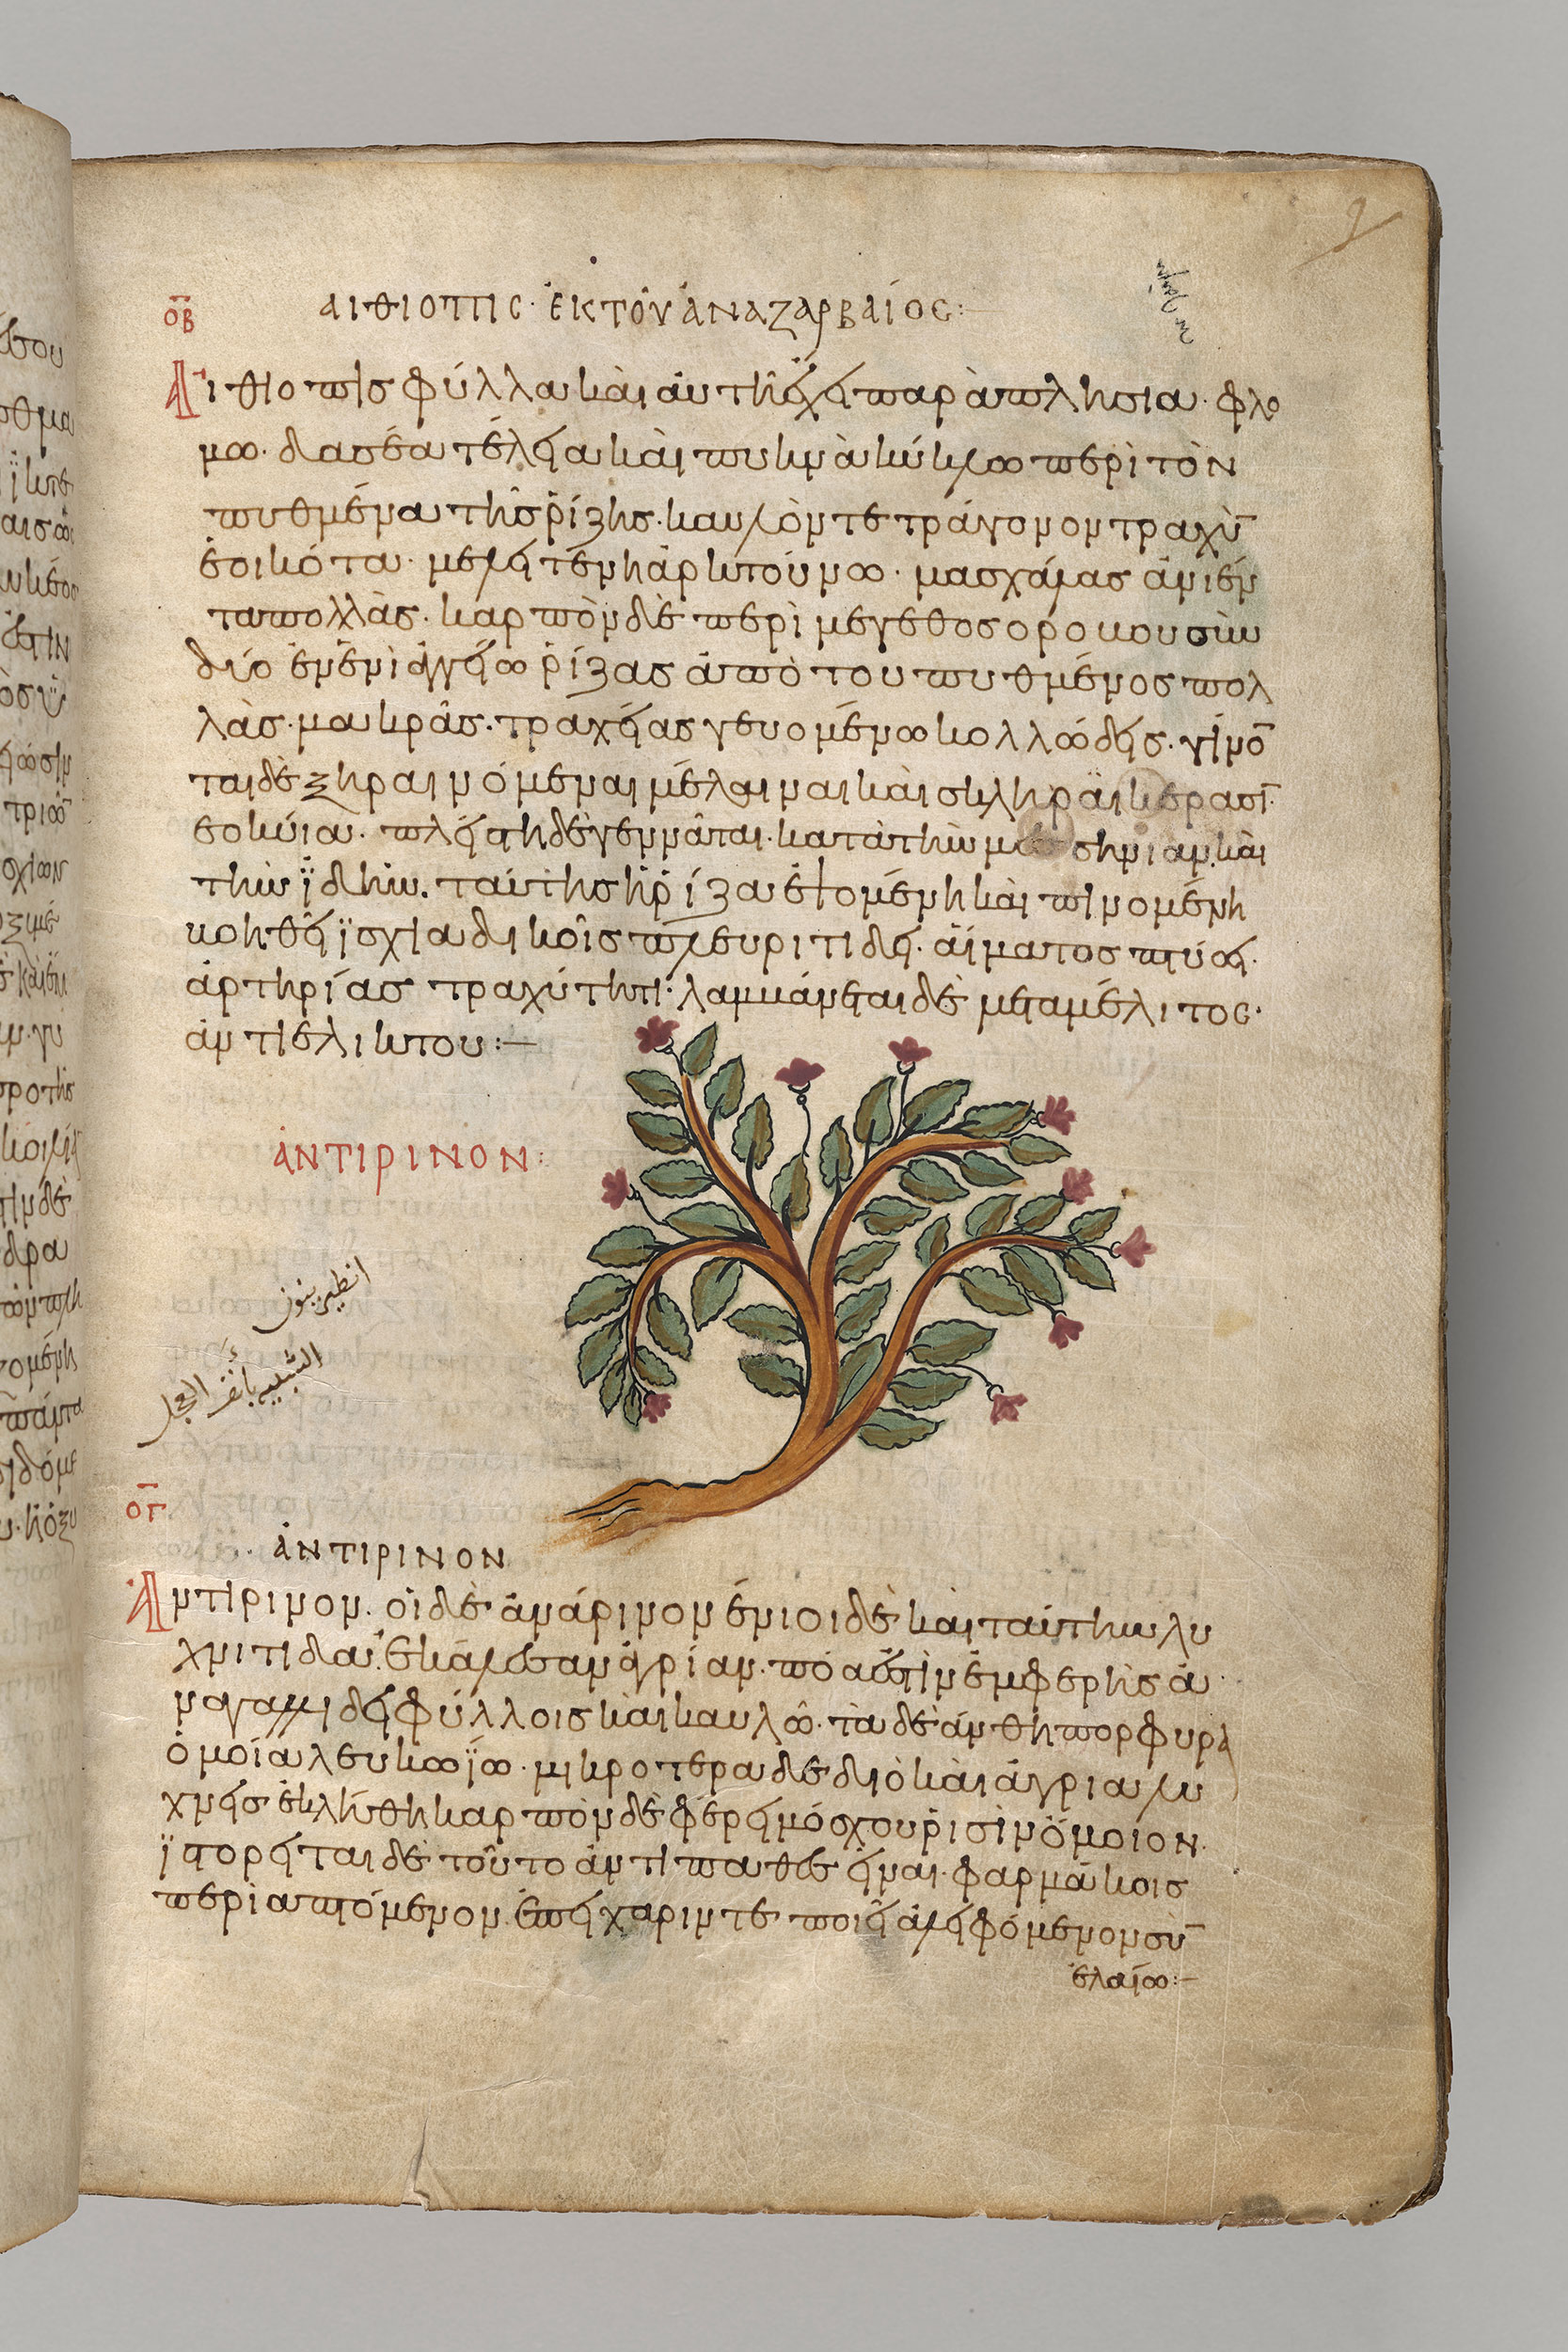 οβ
ΑΙΘΙΟΠΙC· ἐΚ ΤΟΥ ἈΝΑΖΑΡΒΑΙΟC:
Αἰθιοπὶσ φύλλα καὶ αὐτὴ ἔχει παραπλησια· φλο
μω· δασέα τέλεια καὶ πυκνὰ κύκλω περὶ τὸν
πυθμένα τῆσ ῥίζησ· καυλὸν τετράγονον τραχὺ
ἐοικότα· μελιτένη ἀρκτούνω· μασχάλασ ἀνιέν
τα πολλὰσ· καρπὸν δὲ περὶ μεγεθοσ οροκουσὶν
δύο ἐν ἐνὶ ἀγγείω ῥίζασ ἀπὸ του πυθμένοσ πολ
λὰσ· μακρᾶσ· τραχείασ γευομένω κολλώδεισ· γίνο
ται δὲ ξηραινόμεναι μέλαιναι καὶ σκληραὶ κερασι
εοκυία· πλείστη δὲ γεννᾶται· κατὰ τὴν μεσσηνίαν· καὶ
τὴν ἴδην. ταύτησ ἡ ῥίζα ἑψομένη καὶ πινομένη
βοηθεῖ ἰσχιαδικοῖσ πλευριτιδει· αἵματοσ πτύσει·
ἀρτηρίασ τραχύτητι· λαμβάνεται δὲ μετα μέλιτοσ·
ἀντι ελικτου:—
ἀΝΤΙΡΙΝΟΝ:
انطيرينون
الشبيه بأنف العجل
ογ
ἀΝΤΙΡΙΝΟΝ
Ἀντίρινον. οἱ δὲ ἀνάρινον ἔνιοι δὲ καὶ ταύτην λυ
χνιτιδα ἐκάλεσαν ἀγρίαν· πόα ἐστὶν ἐμφερὴσ ἀ
ναγαλλιδει φύλλοισ καὶ καυλῶ· τὰ δὲ άνθη πορφυρᾶ
ὁμοία λευκωΐω· μικροτερα δε διὸ καὶ ἀγρια λυ
χνεὶσ ἐκλήθη καρπὸν δὲ φέρει μόσχου ῥισὶν ὅμοιον.
ἱστορεῖται δὲ τοῦτο ἀντιπαθὲσ εἶναι· φαρμάκοισ
περιαπτόμενον. ἐπίχαριν τε ποιεῖ ἀλειφόμενον σὺ
ελαίω:—